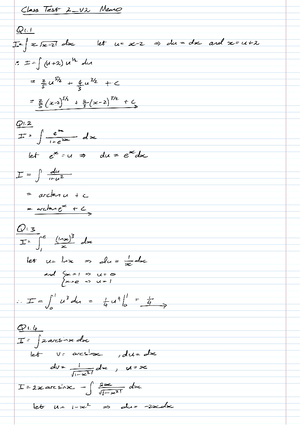 Class Test 2_V2 Memo
Q1.1
I = ∫ x√(x-2) dx let u = x-2 ⇒ du = dx and x = u+2
∴ I = ∫ (u+2) u^(1/2) du
= 2/5 u^(5/2) + 4/3 u^(3/2) + c
= 2/5 (x-2)^(5/2) + 4/3 (x-2)^(3/2) + c
Q1.2
I = ∫ e^x/(1+e^(2x)) dx
let e^x = u ⇒ du = e^x dx
I = ∫ du/(1+u²)
= arctan u + c
= arctan e^x + c
Q1.3
I = ∫₁^e (ln x)³/x dx
let u = ln x ⇒ du = 1/x dx
and { x=1 ⇒ u=0
{ x=e ⇒ u=1
∴ I = ∫₀¹ u³ du = 1/4 u⁴ |₀¹ = 1/4
Q1.4
I = ∫ 2 arcsin x dx
let v = arcsin x , du = dx
dv = 1/√(1-x²) dx , u = x
I = 2x arcsin x - ∫ 2x/√(1-x²) dx
let u = 1-x² ⇒ du = -2x dx